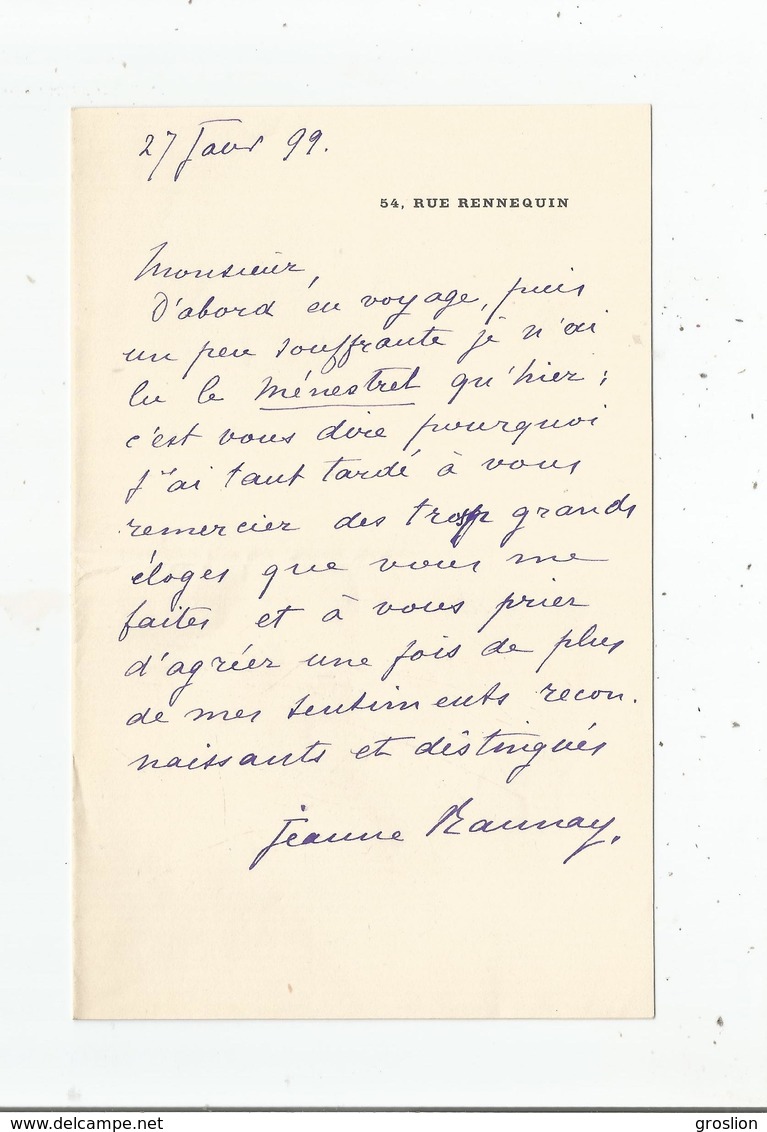 27 Janv 99.
54, RUE RENNEQUIN
Monsieur,
D'abord en voyage, puis
un peu souffrante je n'ai
lu le Ménestrel qu'hier ;
c'est vous dire pourquoi
j'ai tant tardé à vous
remercier des trop grands
éloges que vous me
faites et à vous prier
d'agréer une fois de plus
de mes sentiments recon.
naissants et distingués
Jeanne Raunay.
www.delcampe.net
groslion